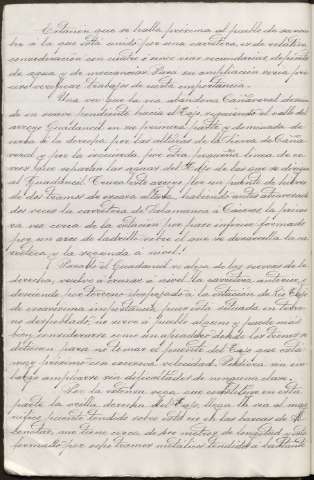 Estación que se halla próxima al pueblo de su nom
bre a la que está unida por una carretera, es de relativa
consideración con cuatro o cinco vías secundarias depósito
de agua y de mercancías. Para su ampliación sería pre
ciso verificar trabajos de cierta importancia.
Una vez que la vía abandona Cañaveral descien
de en suave pendiente hacia el Tajo siguiendo el valle del
arroyo Guadancil en su primera parte y dominada de
cerca a la derecha por las alturas de la Sierra de Caña
veral y por la izquierda por otra pequeña línea de ce
rros que separan las aguas del Tajo de las que se dirigen
al Guadancil. Cruza este arroyo por un puente de hierro
de dos tramos de escasa altura, habiendo antes atravesado
dos veces la carretera de Salamanca a Cáceres, la prime
ra vez cerca de la estación por paso inferior formado
por un arco de ladrillo sobre el que se desarrolla la ca
rretera y la segunda a nivel.
Pasado el Guadancil se aleja de los cerros de la
derecha, vuelve a cruzar a nivel la carretera anterior, y
desciende por terreno despejado a la estación de Río Tajo
de escasísima importancia, pues está situada en terre
no despoblado, no sirve a pueblo alguno y puede más
bien considerarse como un apartadero donde los trenes se
detienen para no tomar el puente del Tajo que está
muy próximo con excesiva velocidad. Pudiera sin em
bargo ampliarse sin dificultades de ninguna clase.
Por la extensa vega que constituye en esta
parte la orilla derecha del Tajo, llega la vía al mag
nífico puente tendido sobre este río en las barcas de Al
conetar, que tiene cerca de metros de longitud y está
formado por siete tramos metálicos tendidos a bastante